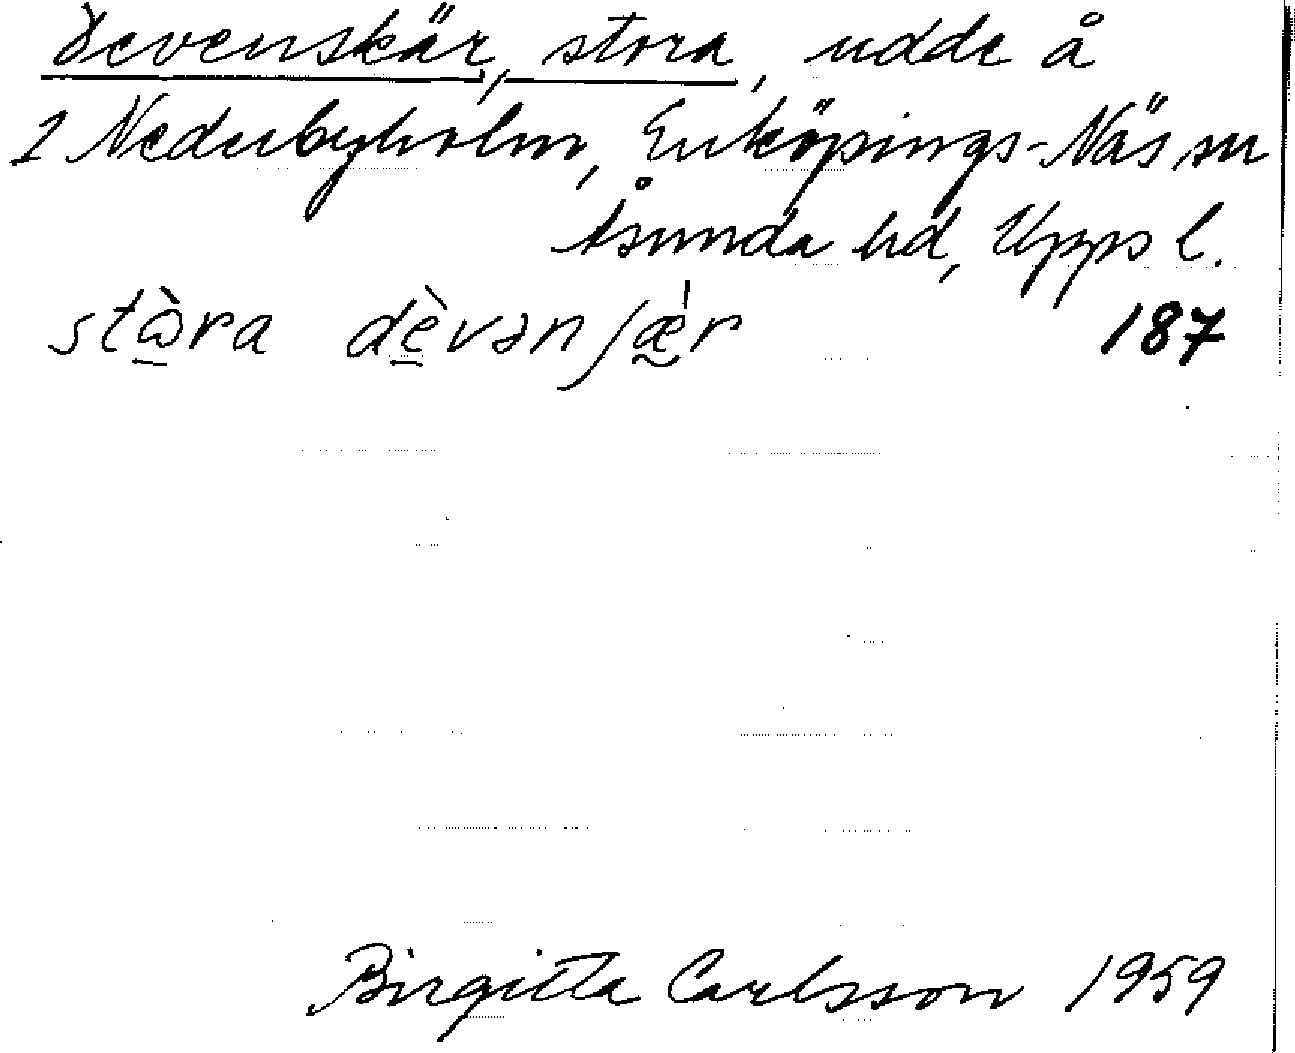 Devenskär, stora, udde å
1 Nederbyholm, Enköpings-Näs sn
Åsunda hd, Upps l.
stὼra dèvənʃæ̀r 187
Birgitta Carlsson 1959